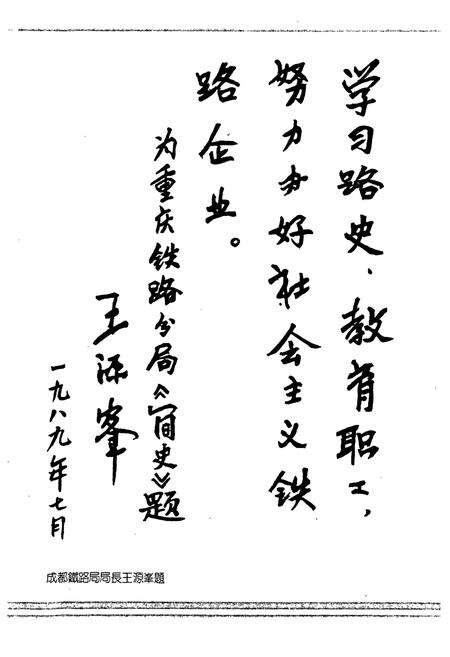 学习路史、教育职工，
努力办好社会主义铁
路企业。
为重庆铁路分局《简史》题
王源峯
一九八九年七月
成都鐵路局局長王源峯題